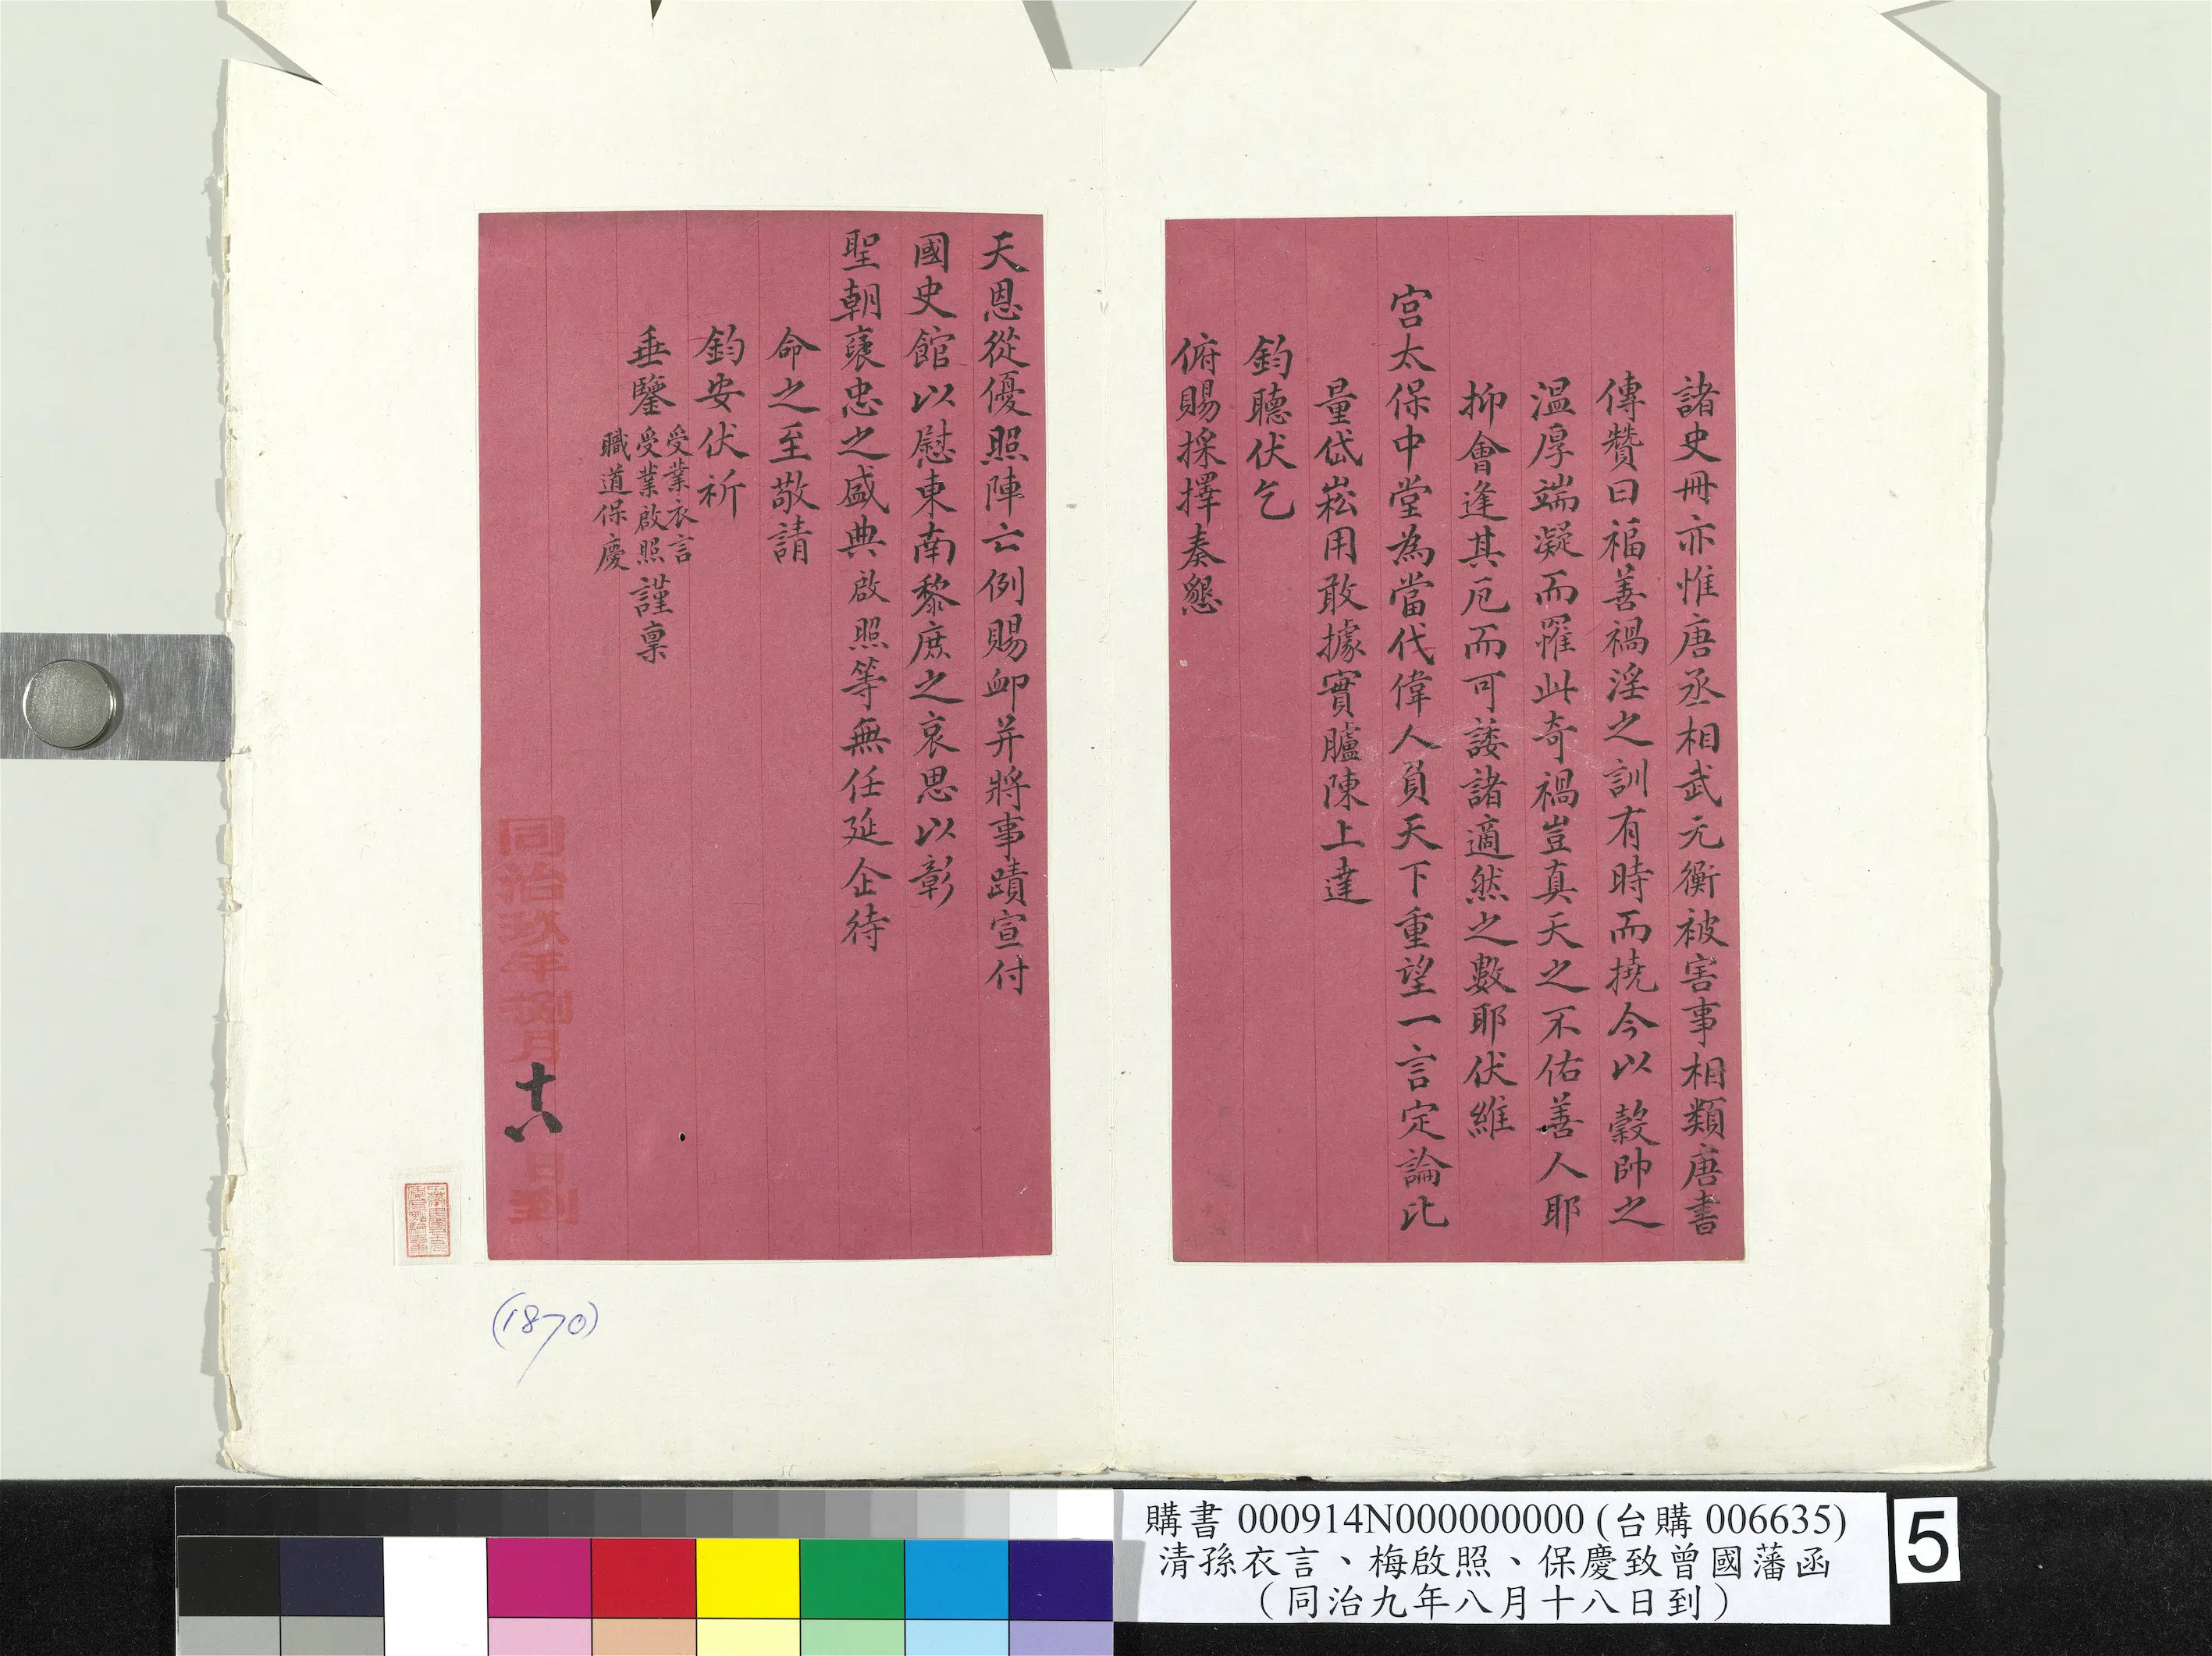 諸史冊亦惟唐丞相武元衡被害事相類唐書
傳贊曰福善禍淫之訓有時而撓今以穀帥之
溫厚端凝而罹此奇禍豈真天之不佑善人耶
抑會逢其厄而可諉諸適然之數耶伏維
宮太保中堂為當代偉人負天下重望一言定論比
量岱崧用敢據實臚陳上達
鈞聽伏乞
俯賜採擇奏懇
天恩從優照陣亡例賜卹并將事蹟宣付
國史館以慰東南黎庶之哀思以彰
聖朝襃忠之盛典啟照等無任延企待
命之至敬請
鈞安伏祈
垂鑒
受業衣言
受業啟照
職道保慶
謹稟
同治玖年捌月十八日到
(1870)
購書 000914N000000000 (台購 006635)
清孫衣言、梅啟照、保慶致曾國藩函
(同治九年八月十八日到)
5